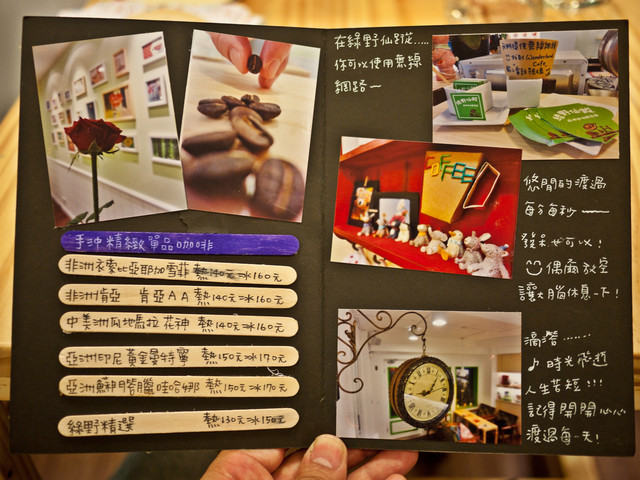 手沖精緻單品咖啡
非洲衣索比亞耶加雪菲 熱140元 冰160元
非洲肯亞 肯亞AA 熱140元 冰160元
中美洲瓜地馬拉花神 熱140元 冰160元
亞洲印尼黃金曼特寧 熱150元 冰170元
亞洲 熱150元 冰170元
綠野精選 熱130元 冰150元
在綠野仙蹤.....
你可以使用無線
網路~
COFFEE
悠閒的渡過
每分每秒
發呆也可以!
偶爾放空
讓大腦休息一下!
滴答......
♪時光飛逝
人生苦短!!!
記得開開心心
渡過每一天!